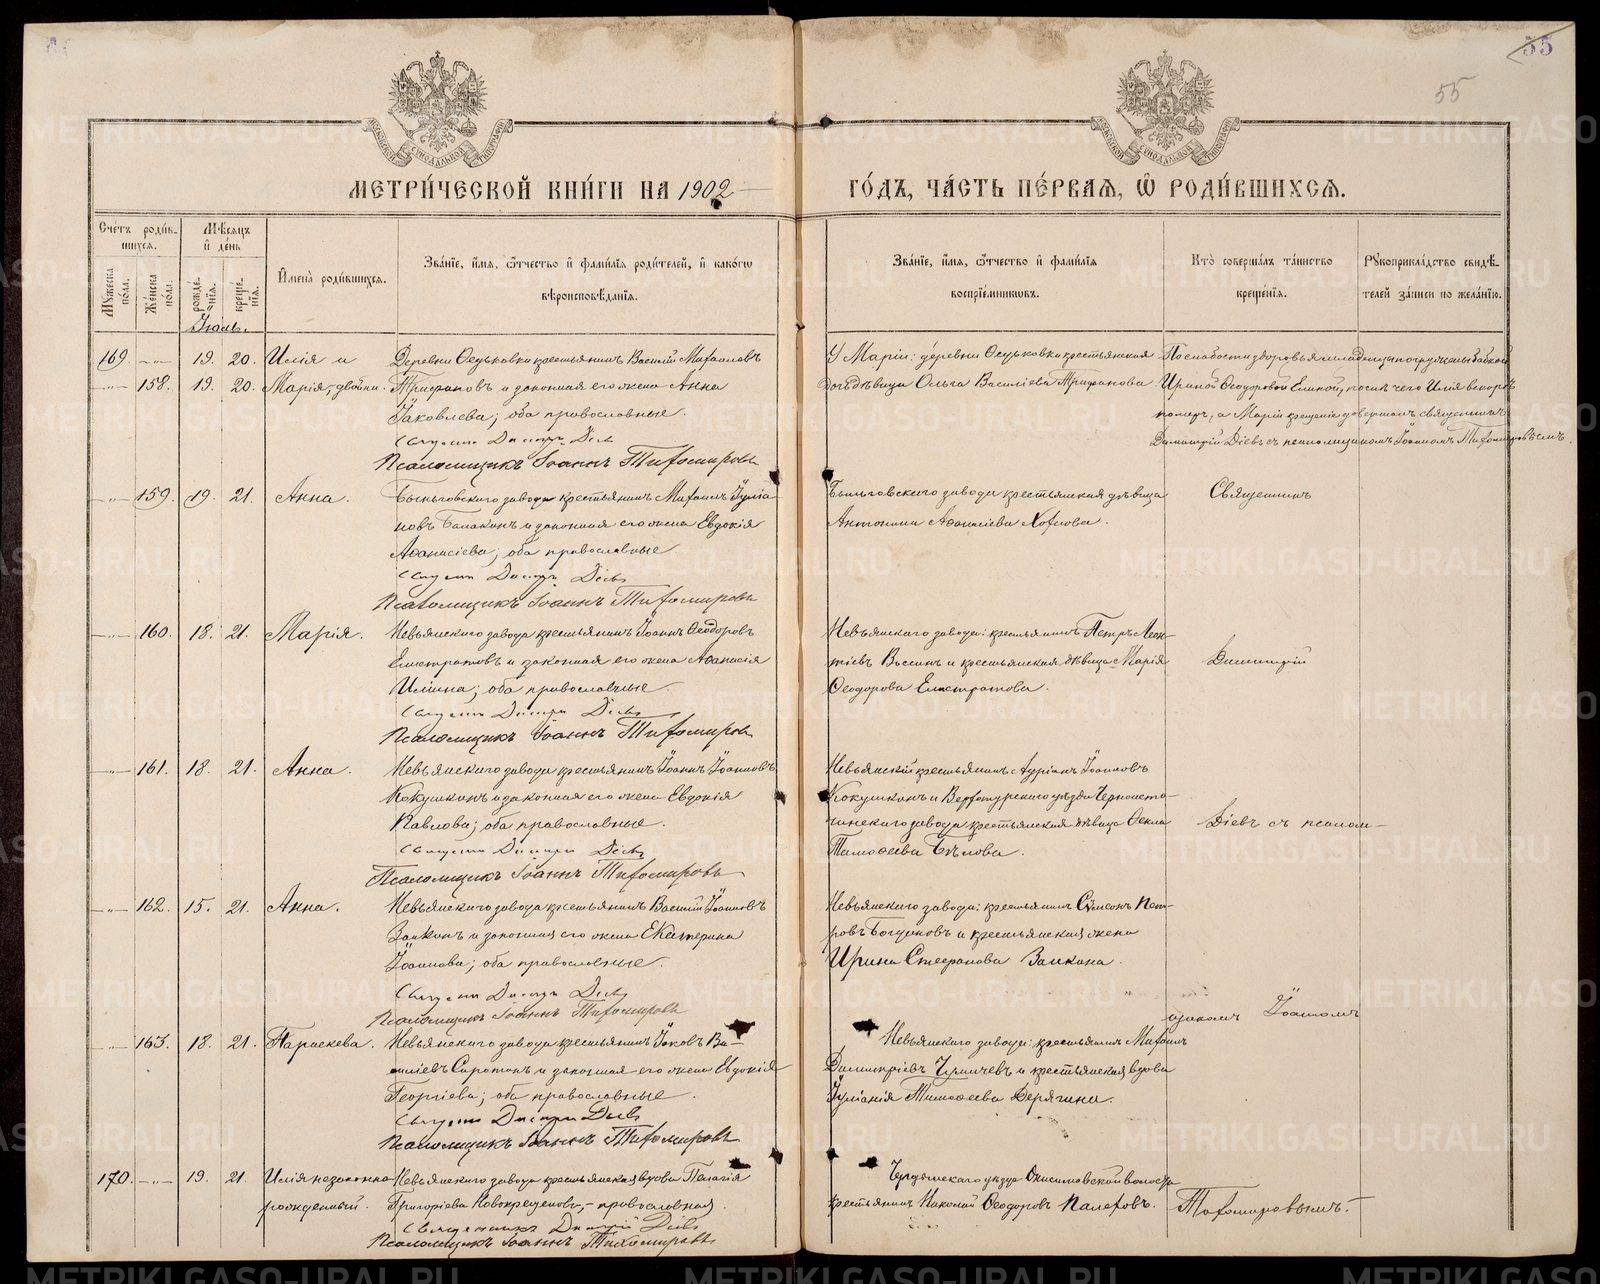 55
55
МЕТРИ́ЧЕСКОЙ КНИ́ГИ НА 1902
ГО́ДЪ, ЧА́СТЬ ПЕ́РВАѦ, Ѡ҆ РОДИ́ВШИХСѦ.
Счетъ родившихся.
Мѣсяцъ и день
Мужеска пола.
Женска пола.
рожденія.
крещенія.
Имена родившихся.
Званіе, имя, отчество и фамилія родителей, и какого вѣроисповѣданія.
Званіе, имя, отчество и фамилія воспріемниковъ.
Кто совершалъ таинство крещенія.
Рукоприкладство свидѣтелей записи по желанію.
Іюль.
169. 19. 20. Илія и
158. 19. 20. Марія, двойни.
Деревни Осуьковки крестьянинъ Василій Михаиловъ
Трифановъ и законная его жена Анна
Іаковлева; оба православные.
Священ Димитр Діевъ
Псаломщикъ Іоаннъ Тихомировъ
У Маріи: деревни крестьянская
дочь дѣвица Ольга Василіева Трифанова
По слабости здоровья младенцы погружены бабкой
Ириной Ѳеодоровой послѣ чего Илія вскорѣ
померъ, а Маріи крещеніе довершалъ священникъ
Димитрій Діевъ съ псаломщикомъ Іоанномъ Тихомировымъ.
159. 19. 21. Анна.
Быньговскаго завода крестьянинъ Михаилъ Іуліа-
новъ Балакинъ и законная его жена Евдокія
Аѳанасіева; оба православные
Священ Димитр Діевъ
Псаломщикъ Іоаннъ Тихомировъ
Быньговскаго завода крестьянская дѣвица
Антонина Аѳанасіева
Священникъ
160. 18. 21. Марія.
Невьянскаго завода крестьянинъ Іоаннъ Ѳеодоровъ
Елистратовъ и законная его жена Аѳанасія
Ильина; оба православные.
Священ Димитр Діевъ
Псаломщикъ Іоаннъ Тихомировъ
Невьянскаго завода: крестьянинъ Петръ Леон-
тіевъ и крестьянская дѣвица Марія
Ѳеодорова Елистратова.
Димитрій
161. 18. 21. Анна.
Невьянскаго завода крестьянинъ Іоаннъ Іоанновъ
Кокушкинъ и законная его жена Евдокія
Павлова; оба православные.
Священ Димитр Діевъ
Псаломщикъ Іоаннъ Тихомировъ
Невьянскій крестьянинъ Адріанъ Іоанновъ
Кокушкинъ и Верхотурскаго уѣзда Черноисто-
чинскаго завода крестьянская дѣвица Ѳекла
Тимоѳеева Бѣлова.
Діевъ съ псалом-
162. 15. 21. Анна.
Невьянскаго завода крестьянинъ Василій Іоанновъ
Заикинъ и законная его жена Екатерина
Іоаннова; оба православные.
Священ Димитр Діевъ
Псаломщикъ Іоаннъ Тихомировъ
Невьянскаго завода: крестьянинъ Сѵмеонъ Пет-
ровъ Богдановъ и крестьянская жена
Ирина Стефанова Заикина.
щикомъ Іоанномъ
163. 18. 21. Параскева.
Невьянскаго завода крестьянинъ Іаковъ Ва-
силіевъ Сиротинъ и законная его жена Евдокія
Георгіева; оба православные.
Священ Димитр Діевъ
Псаломщикъ Іоаннъ Тихомировъ
Невьянскаго завода: крестьянинъ Михаилъ
Димитріевъ и крестьянская вдова
Іуліанія Тимоѳеева Дерягина.
170. 19. 21. Илія незаконно
рожденный.
Невьянскаго завода крестьянская вдова Пелагія
Григоріева Новокрещенова, - православная.
Священникъ Димитрій Діевъ
Псаломщикъ Іоаннъ Тихомировъ
уѣзда волости
крестьянинъ Николай Ѳеодоровъ Палеховъ.
Тихомировымъ.
METRIKI.GASO-URAL.RU